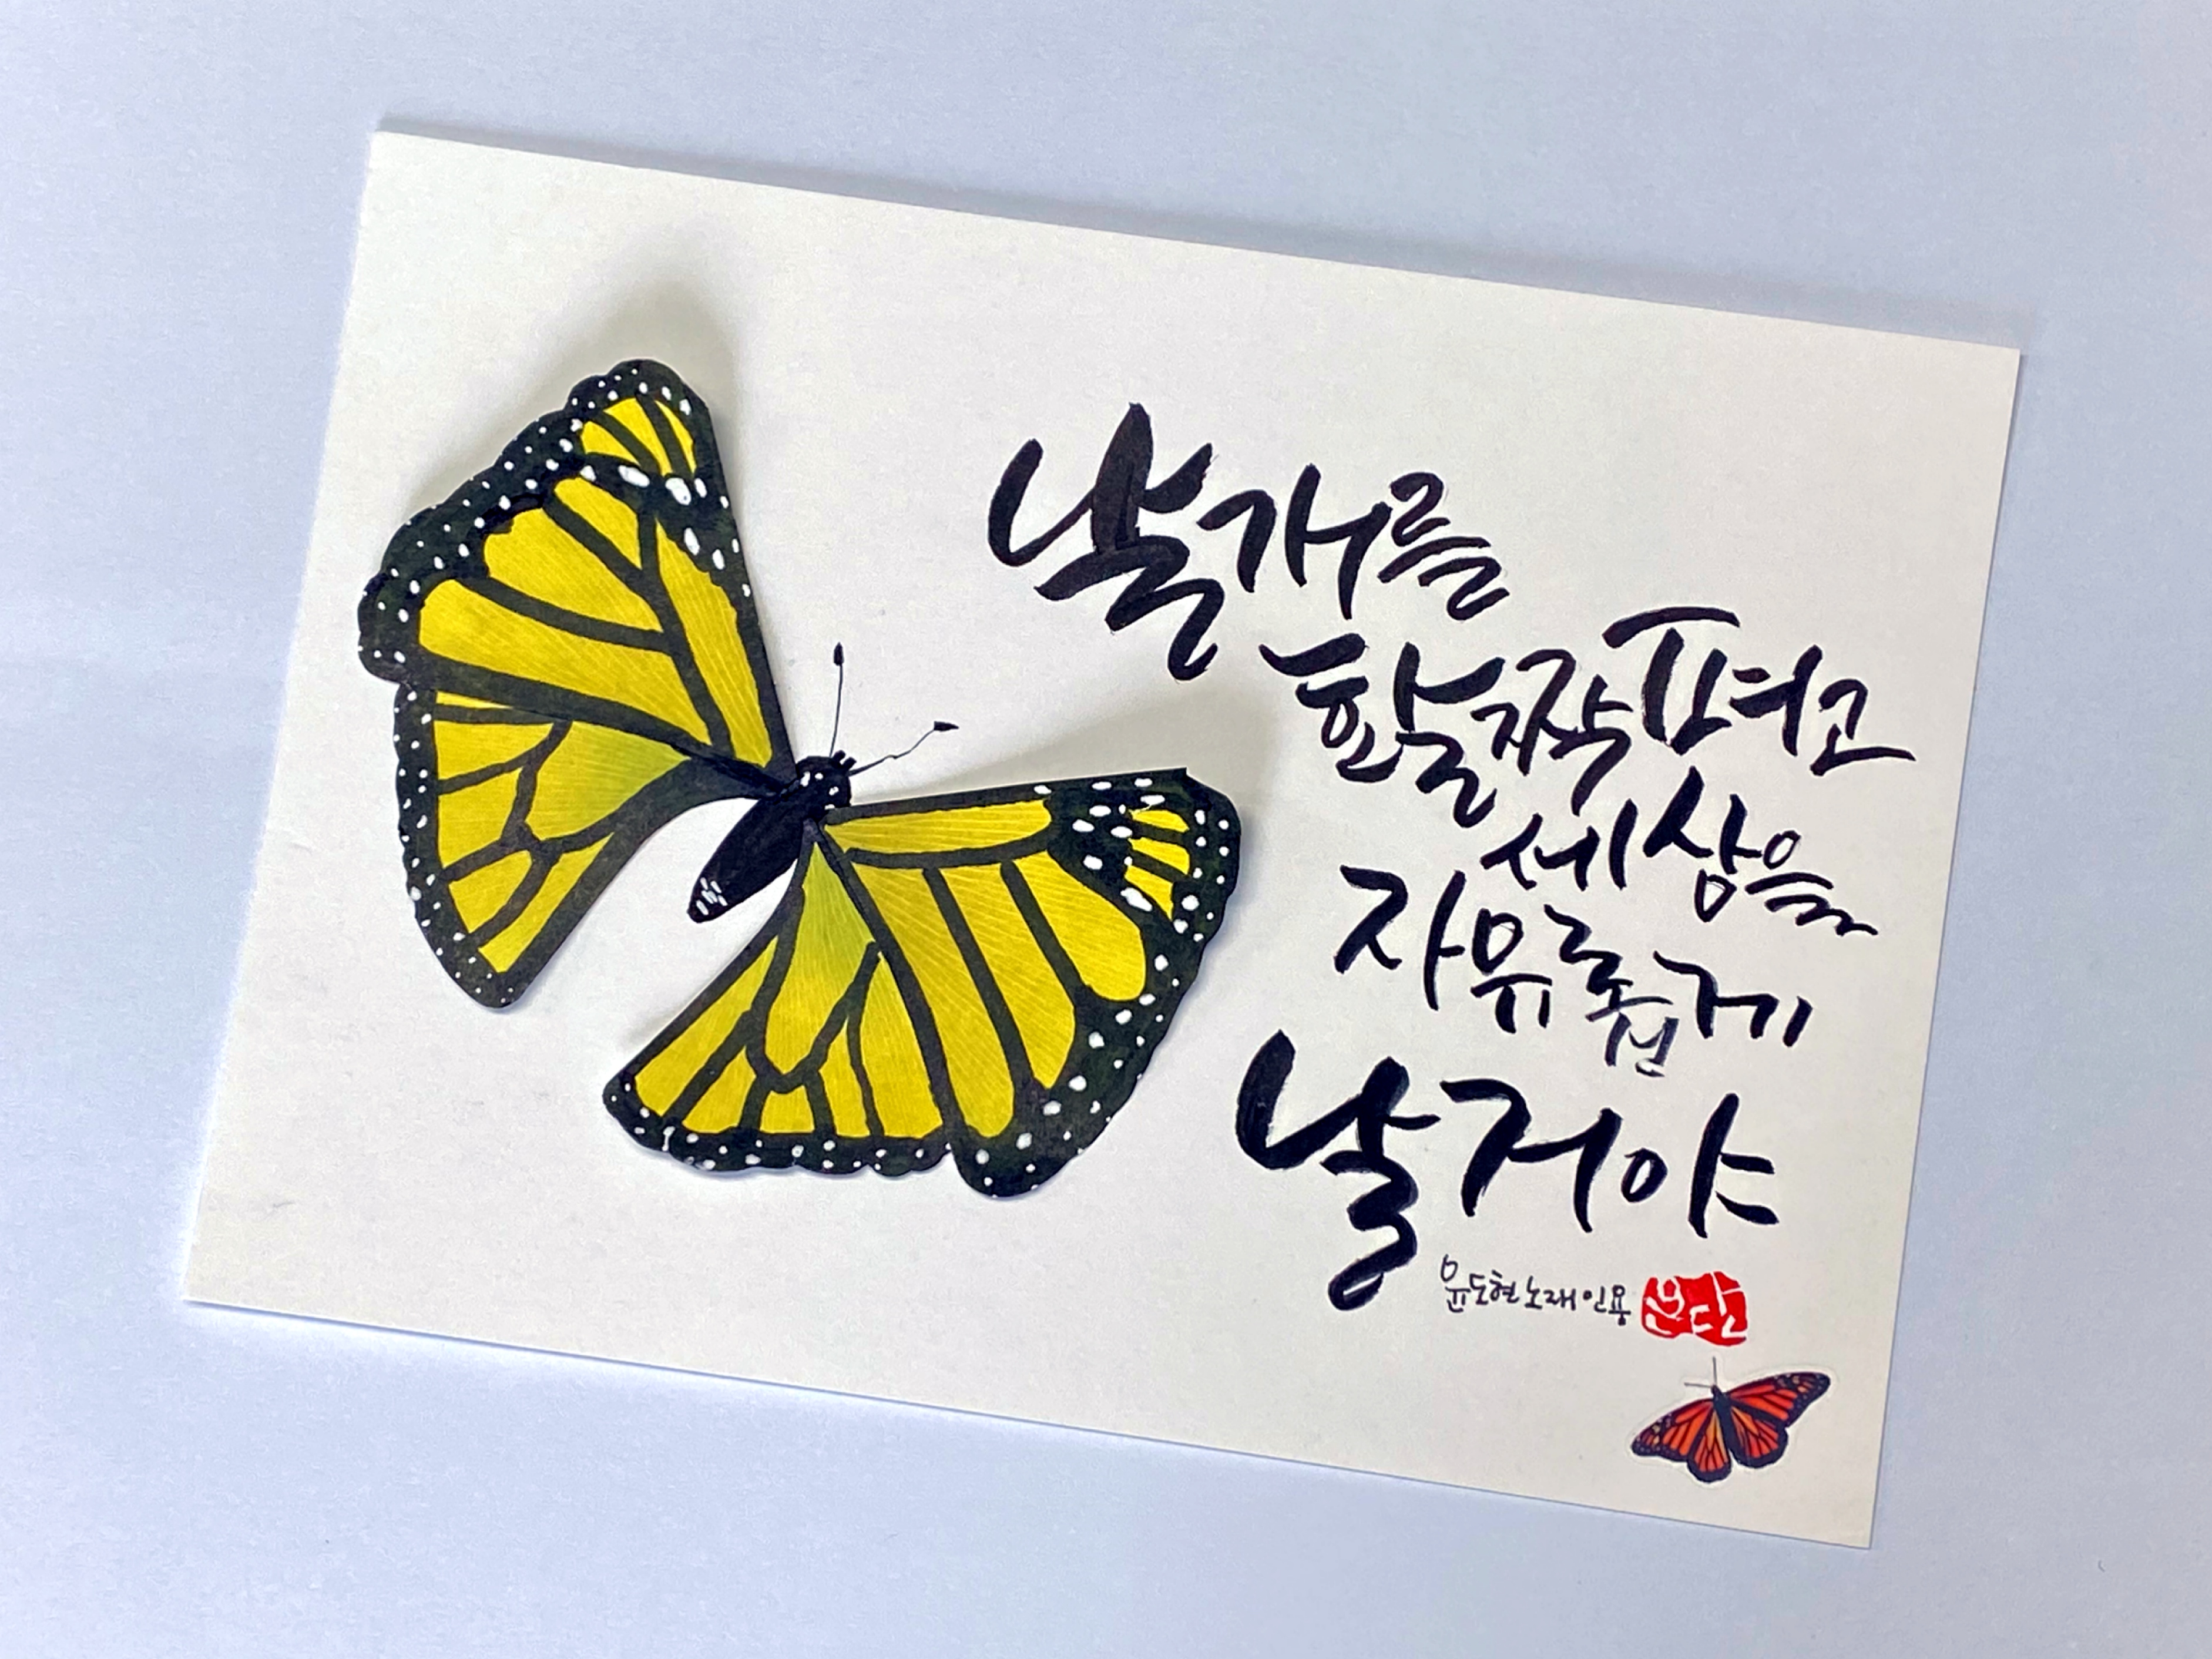 날개를
활짝 펴고
세상을
자유롭게
날거야
윤도현 노래 인용